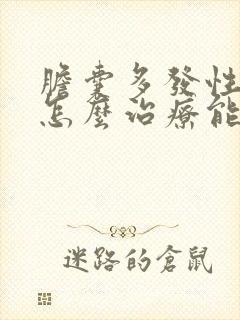 膽囊多發性
怎麼治療能
迷路的倉鼠